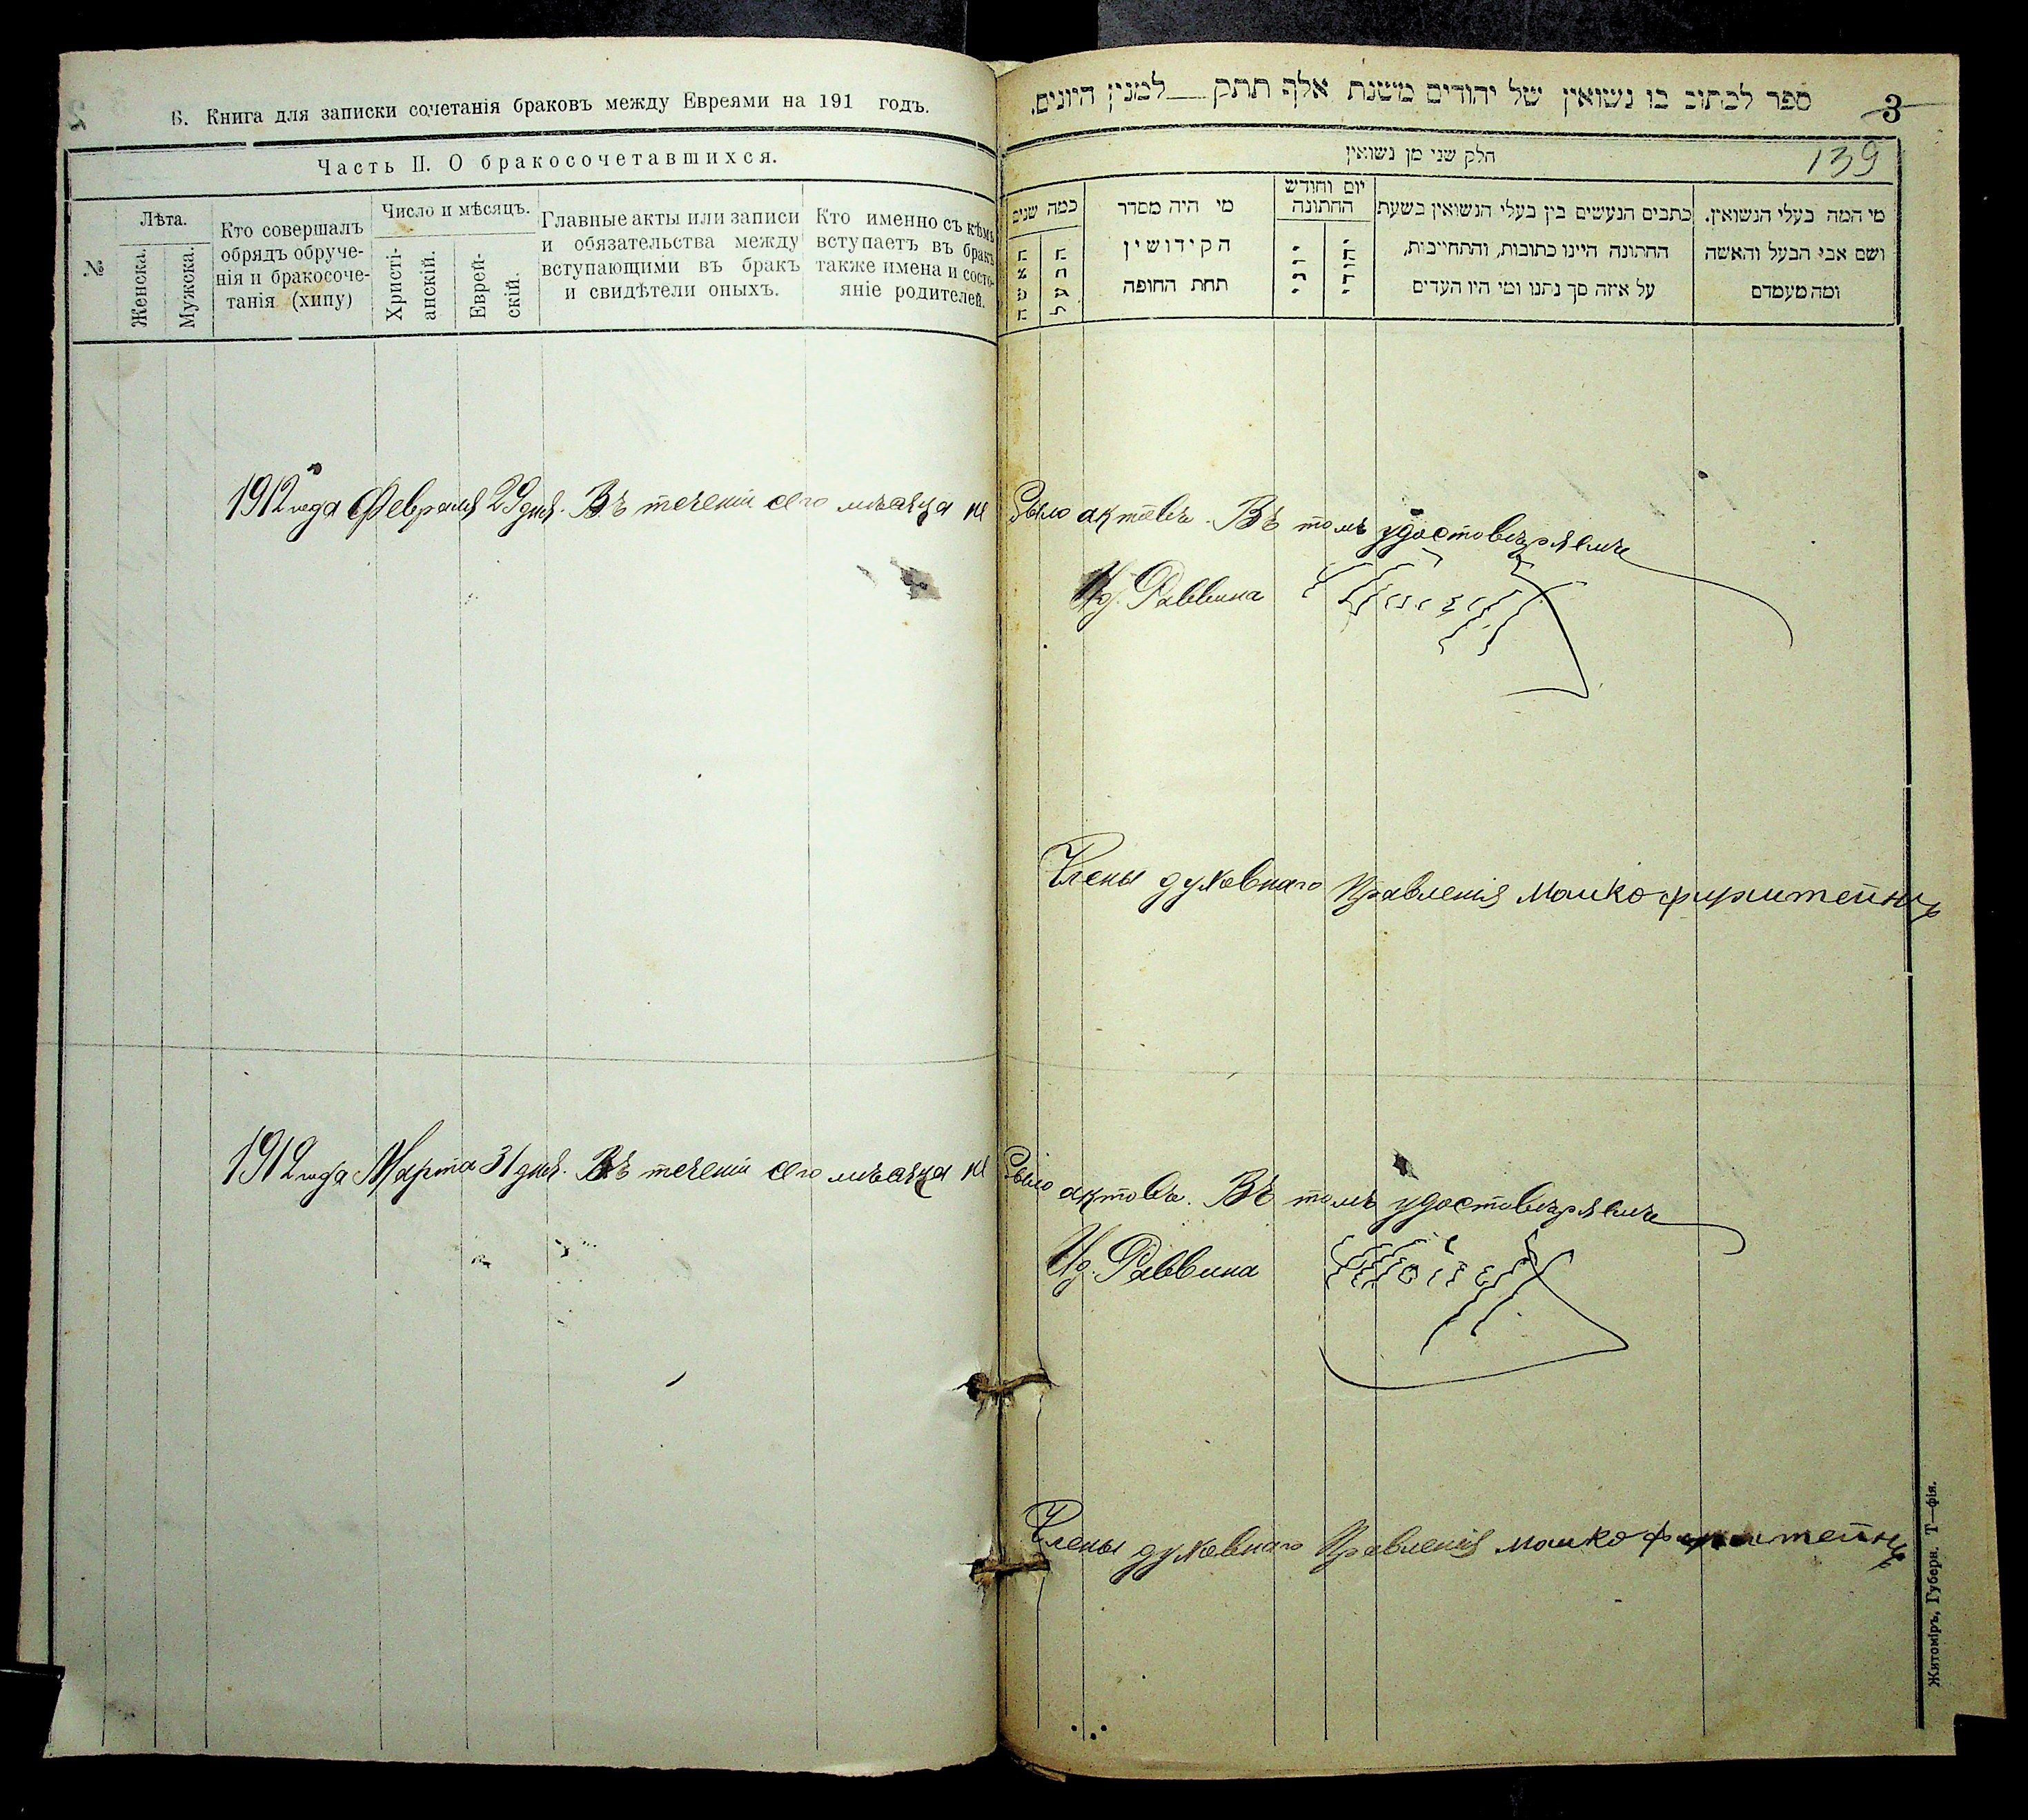 В. Книга для записки сочетанія браковъ между Евреями на 191 годъ.
Часть II. О бракосочетавшихся.
№
Лѣта.
Женска.
Мужска.
Кто совершалъ
обрядъ обруче-
нія и бракосоче-
танія (хипу)
Число и мѣсяцъ.
Христі-
анскій.
Еврей-
скій.
Главные акты или записи
и обязательства между
вступающими въ бракъ
и свидѣтели оныхъ.
Кто именно съ кѣмъ
вступаетъ въ бракъ
также имена и состо-
яніе родителей.
ספר לכתוב בו נשואין של יהודים משנת אלף תתק למנין היונים.
3
139
חלק שני מן נשואין
מי המה בעלי הנשואין.
ושם אבי הבעל והאשה
ומה מעמדם
כתבים הנעשים בין בעלי הנשואין בשעת
החתונה היינו כתובות, והתחייבות,
על איזה סך נתנו ומי היו העדים
יום וחודש
החתונה
היהודי
היוני
מי היה מסדר
הקידושין
תחת החופה
כמה שנים
הבעל
האשה
1912 года Февраля 29 дня. Въ теченіи сего мѣсяца не было актовъ. Въ томъ удостовѣряемъ
И д. Раввина
Члены духовнаго Правленія Мошко
1912 года Марта 31 дня. Въ теченіи сего мѣсяца не было актовъ. Въ томъ удостовѣряемъ
И д. Раввина
Члены духовнаго Правленія мошко
Житоміръ, Губерн. Т—фія.